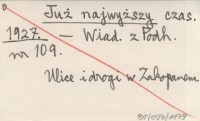 Już najwyższy czas.
1927. – Wiad. z Podh.
nr 109.
Ulice i drogi w Zakopanem.